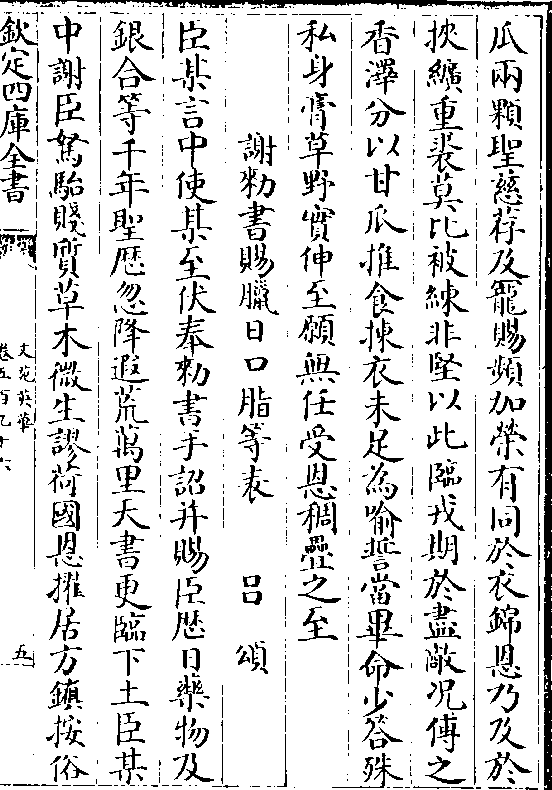 瓜兩顆聖慈荐及寵賜頻加榮有同於衣錦恩乃及於
挾纊重裘莫比被練非堅以此臨戎期於盡敵况傳之
香澤分以甘瓜推食揀衣未足為喻誓當畢命少答殊
私身膏草野實伸至願無任受恩稠疊之至
謝勑書賜臘日口脂等表 吕頌
臣某言中使某至伏奉勑書手詔并賜臣歴日藥物及
銀合等千年聖歴忽降遐荒萬里天書更臨下土臣某
中謝臣駑駘賤質草木微生謬荷國恩擢居方鎮按俗
欽定四庫全書
文苑英華
卷五百九十六
五